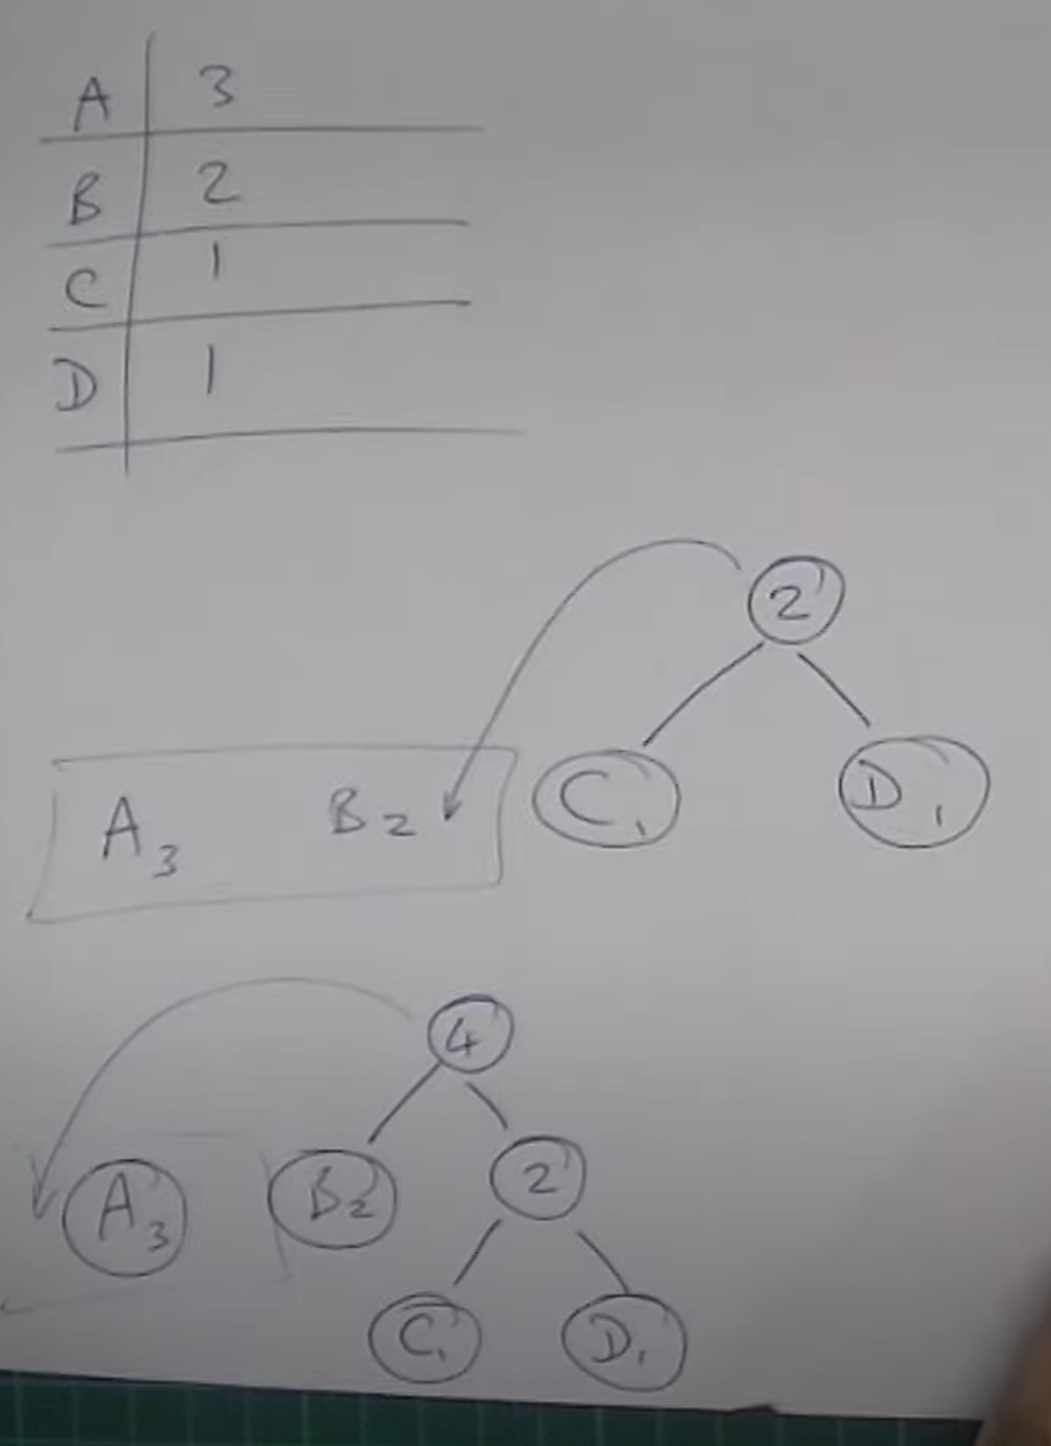 A 3
B 2
C 1
D 1
2
A3 B2 C1 D1
4
A3 B2 2
C1 D1